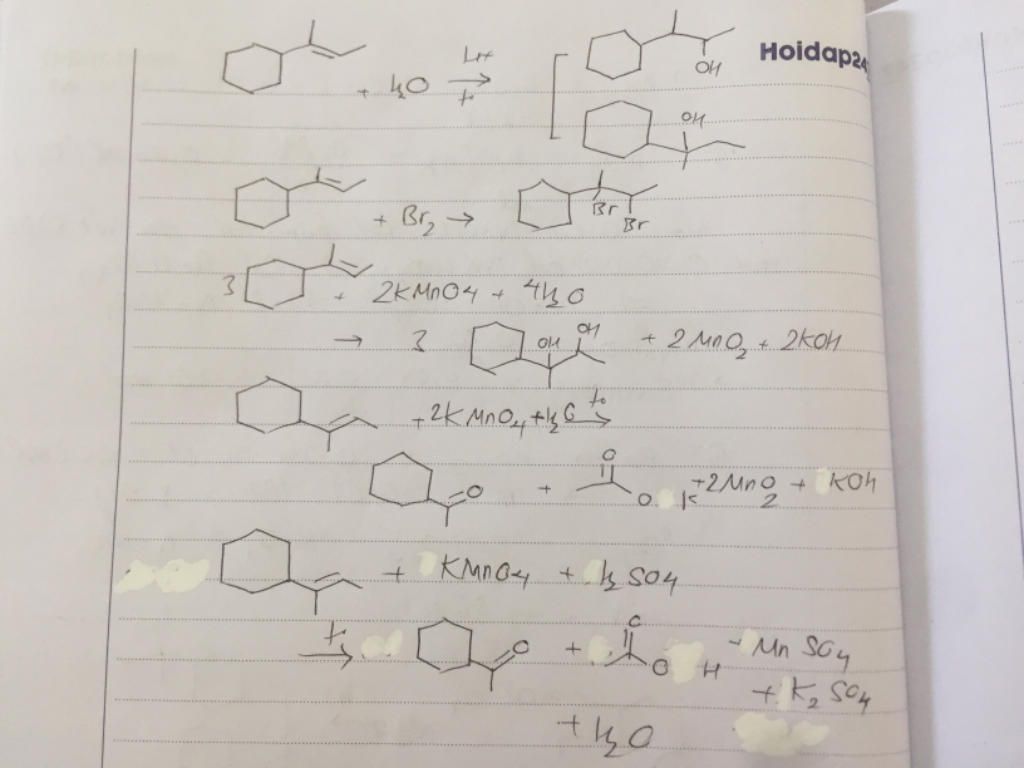 Hoidap24
OH
+ H2O H+ to
OH
+ Br2 → Br Br
3 + 2KMnO4 + 4H2O
→ 3 OH OH + 2MnO2 + 2KOH
+ 2KMnO4 + H2O to
O + O O K + 2MnO2 + KOH
+ KMnO4 + H2SO4
to O + O O H - MnSO4
+ K2SO4
+ H2O